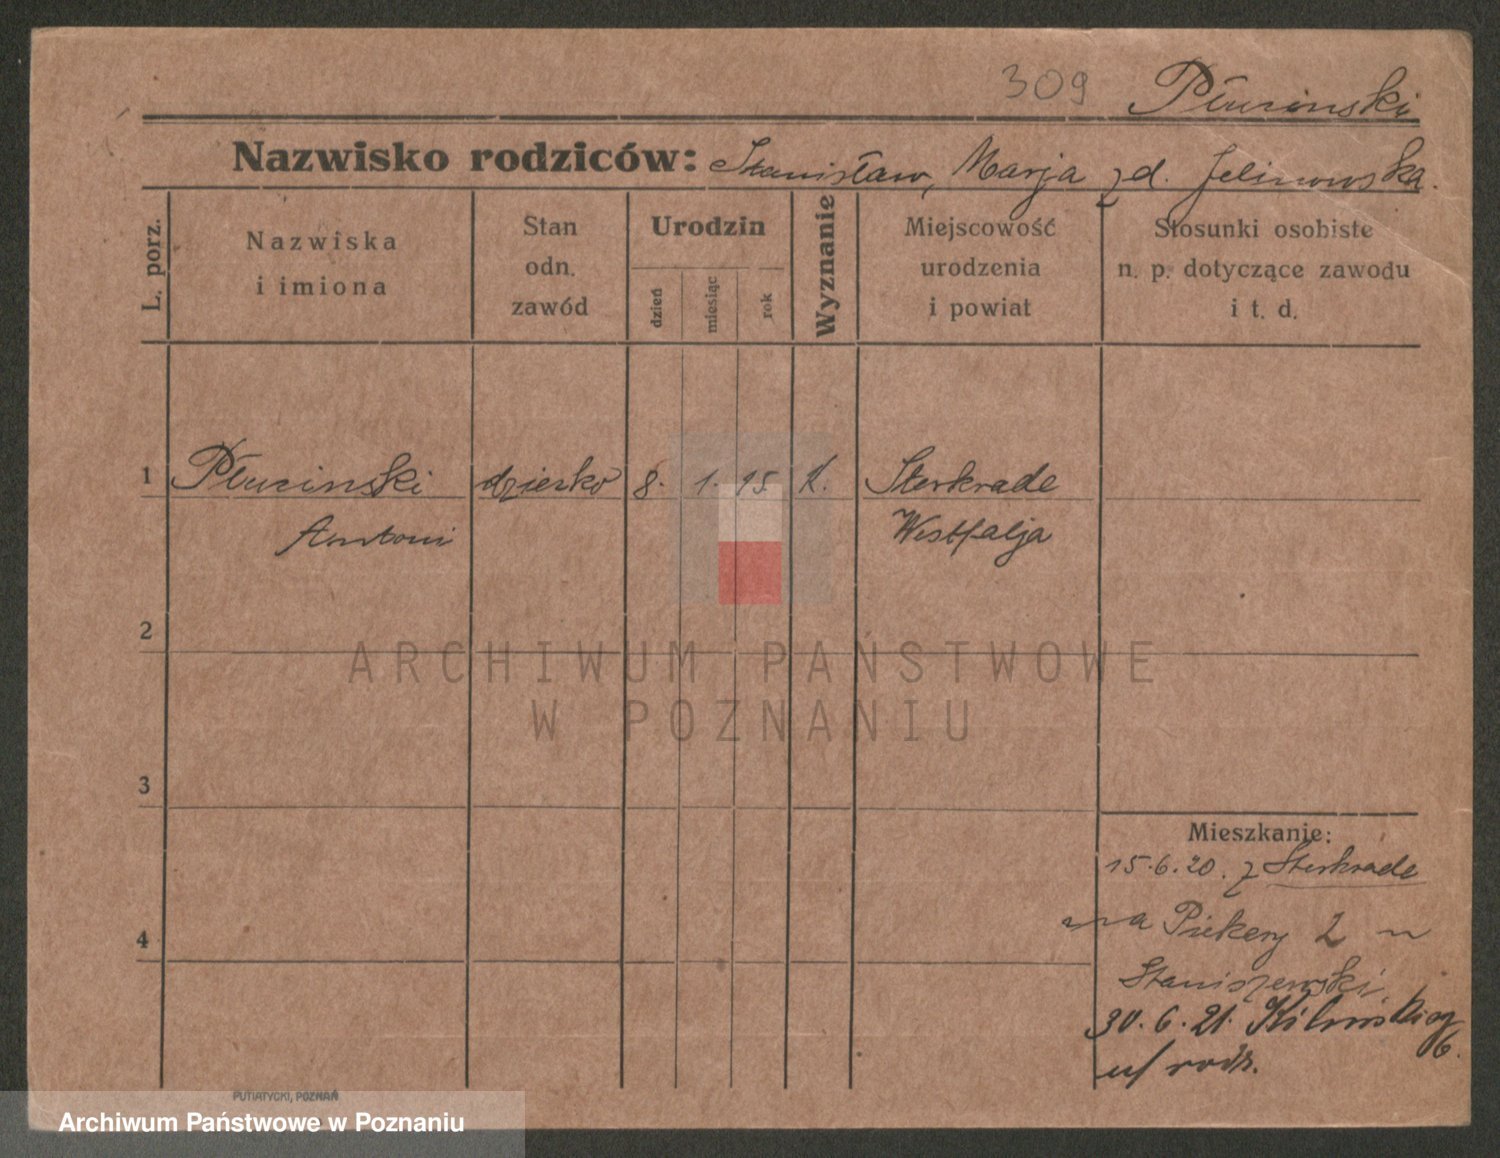 309 Płuciński
Nazwisko rodziców: Stanisław, Marja zd. Jelinowska.
L. porz.
Nazwiska
i imiona
Stan
odn.
zawód
Urodzin
dzień
miesiąc
rok
Wyznanie
Miejscowość
urodzenia
i powiat
Stosunki osobiste
n. p. dotyczące zawodu
i t. d.
1 Płuciński dziecko 8. 1. 15. k. Sterkrade
Antoni Westfalja
2
3
4
Mieszkanie:
15.6.20. z Sterkrade
na Piekery 2 u
Staniszewski
30.6.21. Kilińskieg
6.
u/ rodz.
PUTIATYCKI, POZNAŃ
ARCHIWUM PAŃSTWOWE
W POZNANIU
Archiwum Państwowe w Poznaniu